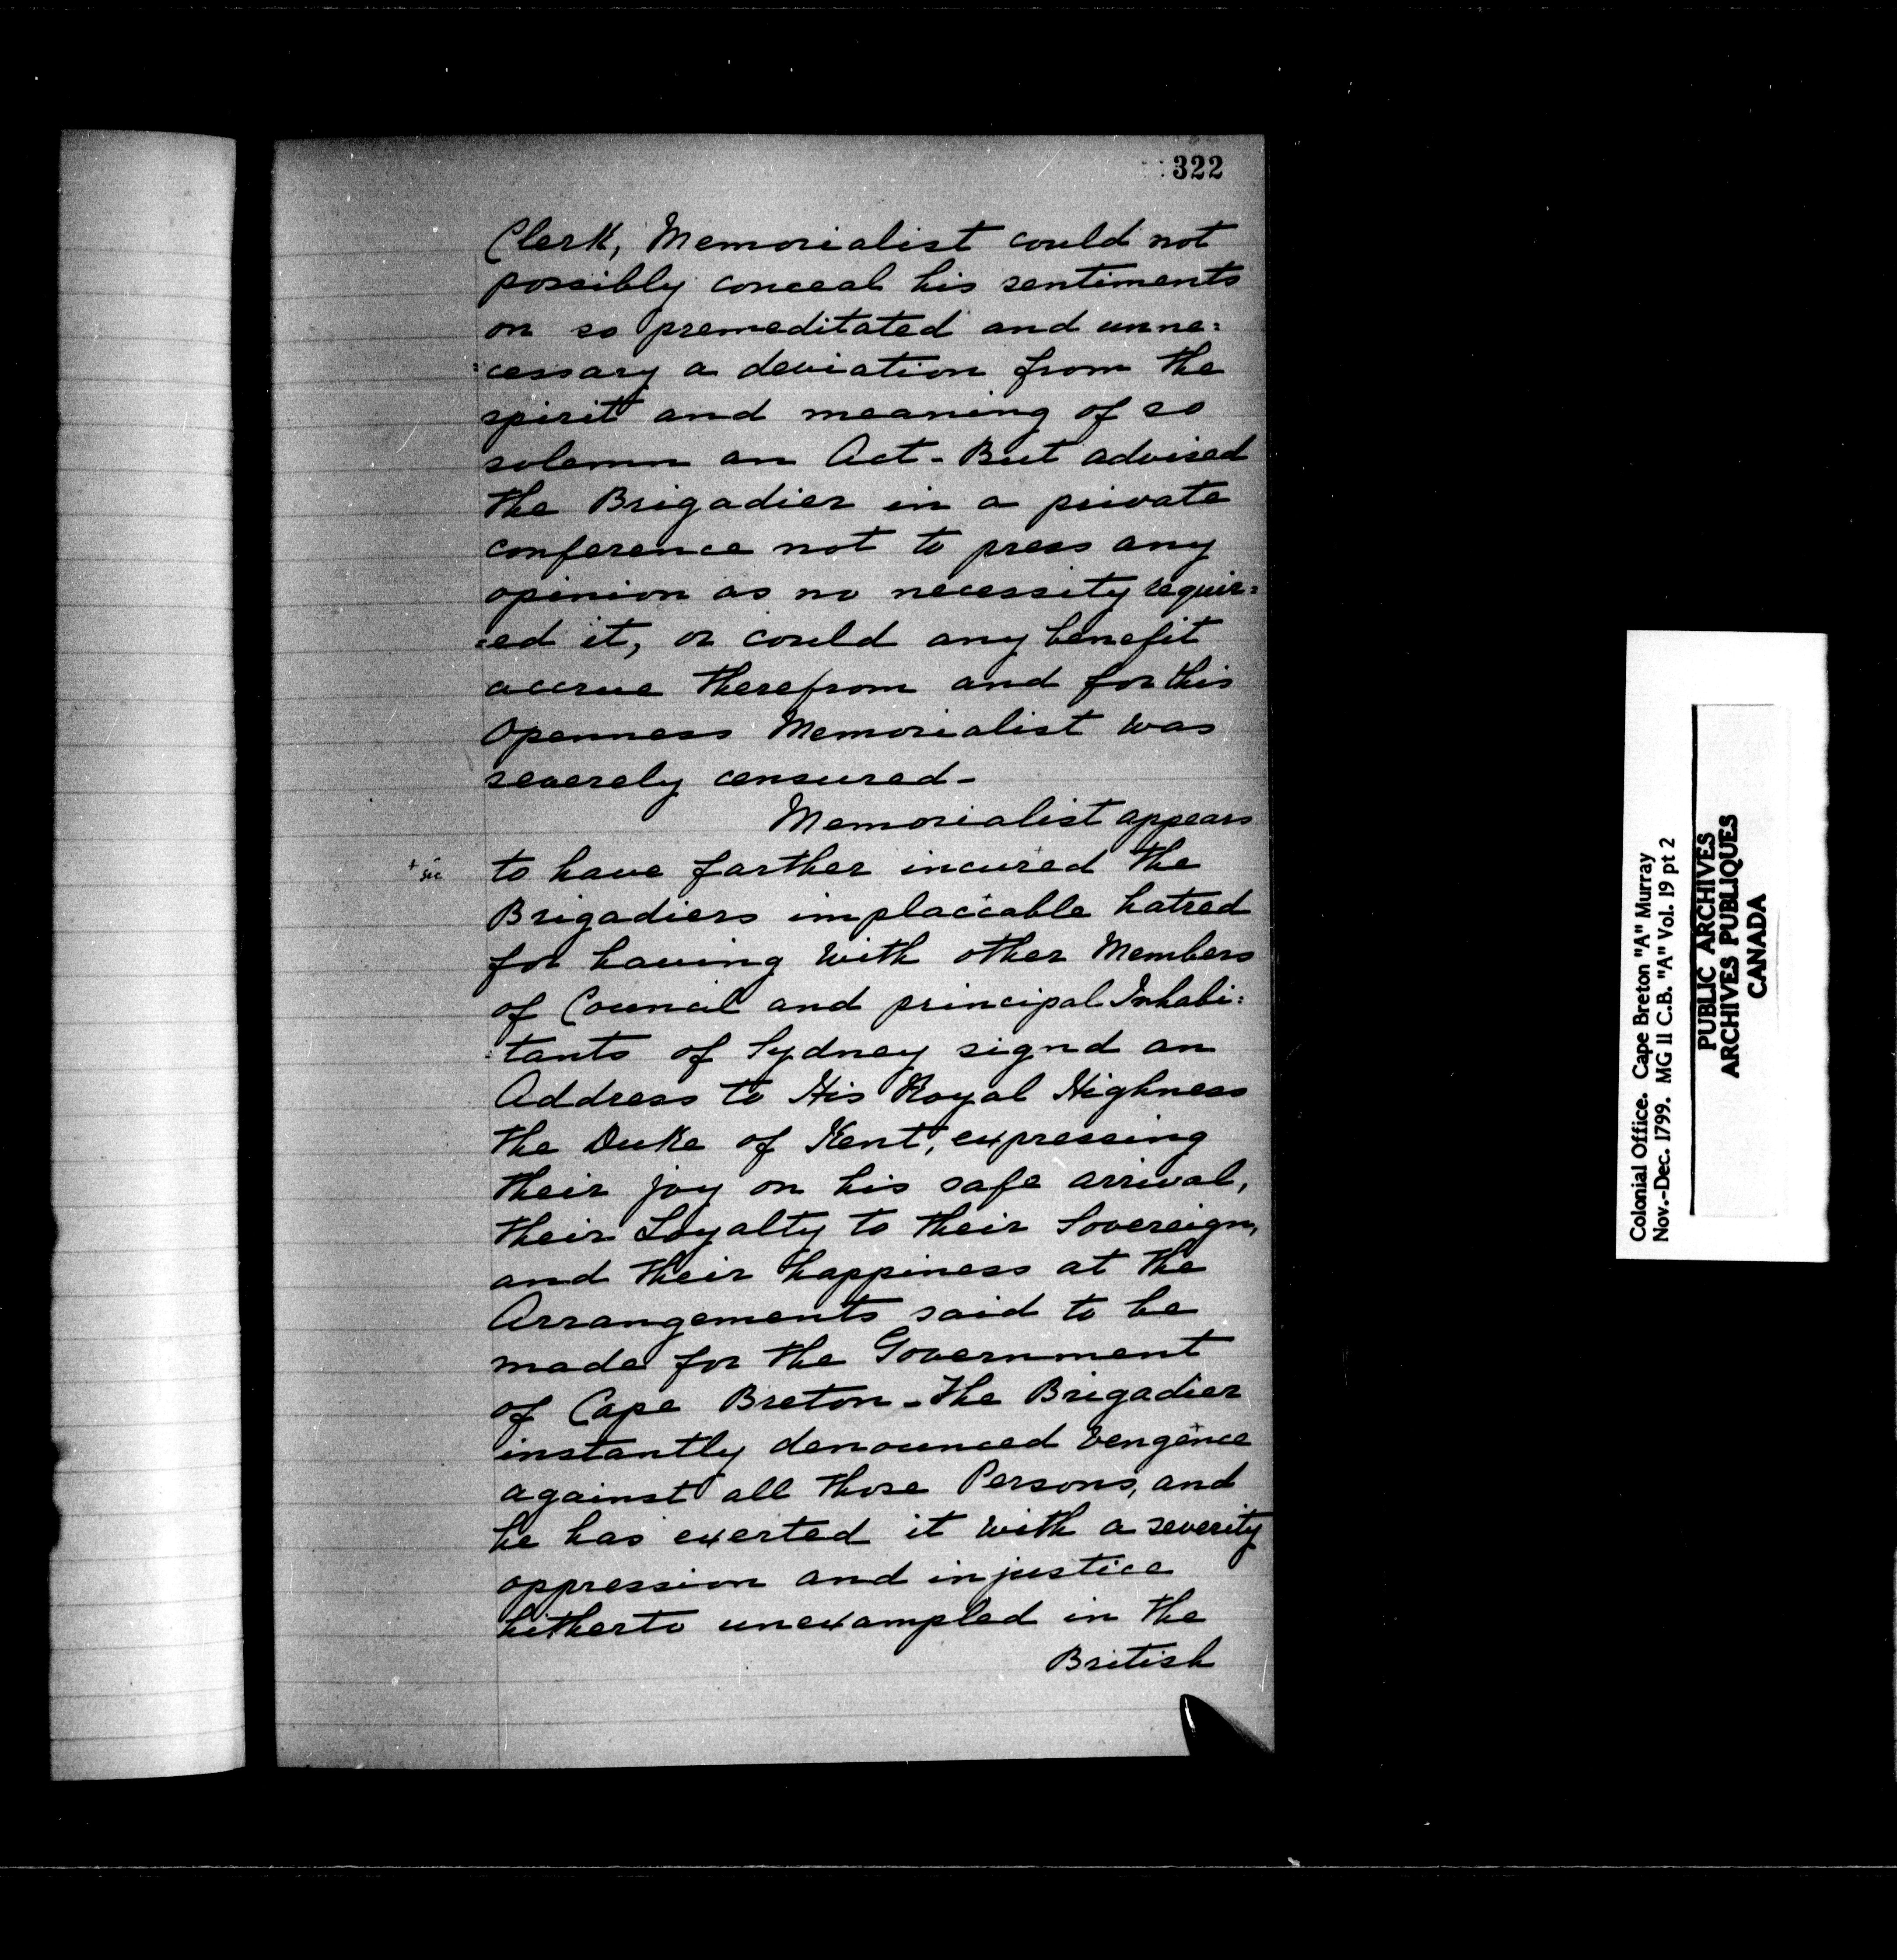 322
Clerk, Memorialist could not
possibly conceal his sentiments
on so premeditated and unne:
:cessary a deviation from the
spirit and meaning of so
solemn an Act - But advised
the Brigadier in a private
conference not to press any
opinion as no necessity requir:
:ed it, or could any benefit
accrue therefrom and for this
Openness Memorialist was
severely censured -
Memorialist appears
+ sic
to have farther incured + the
Brigadiers implaccable hatred
for having with other Members
of Council and principal Inhabi:
:tants of Sydney signd an
Address to His Royal Highness
the Duke of Kent, expressing
their joy on his safe arrival,
their Loyalty to their Sovereign,
and their happiness at the
Arrangements said to be
made for the Government
of Cape Breton - The Brigadier
instantly denounced vengence +
against all those Persons, and
he has exerted it with a severity
oppression and injustice
hitherto unexampled in the
British
Colonial Office. Cape Breton "A" Murray
Nov.-Dec. 1799. MG 11 C.B. "A" Vol. 19 pt 2
PUBLIC ARCHIVES
ARCHIVES PUBLIQUES
CANADA